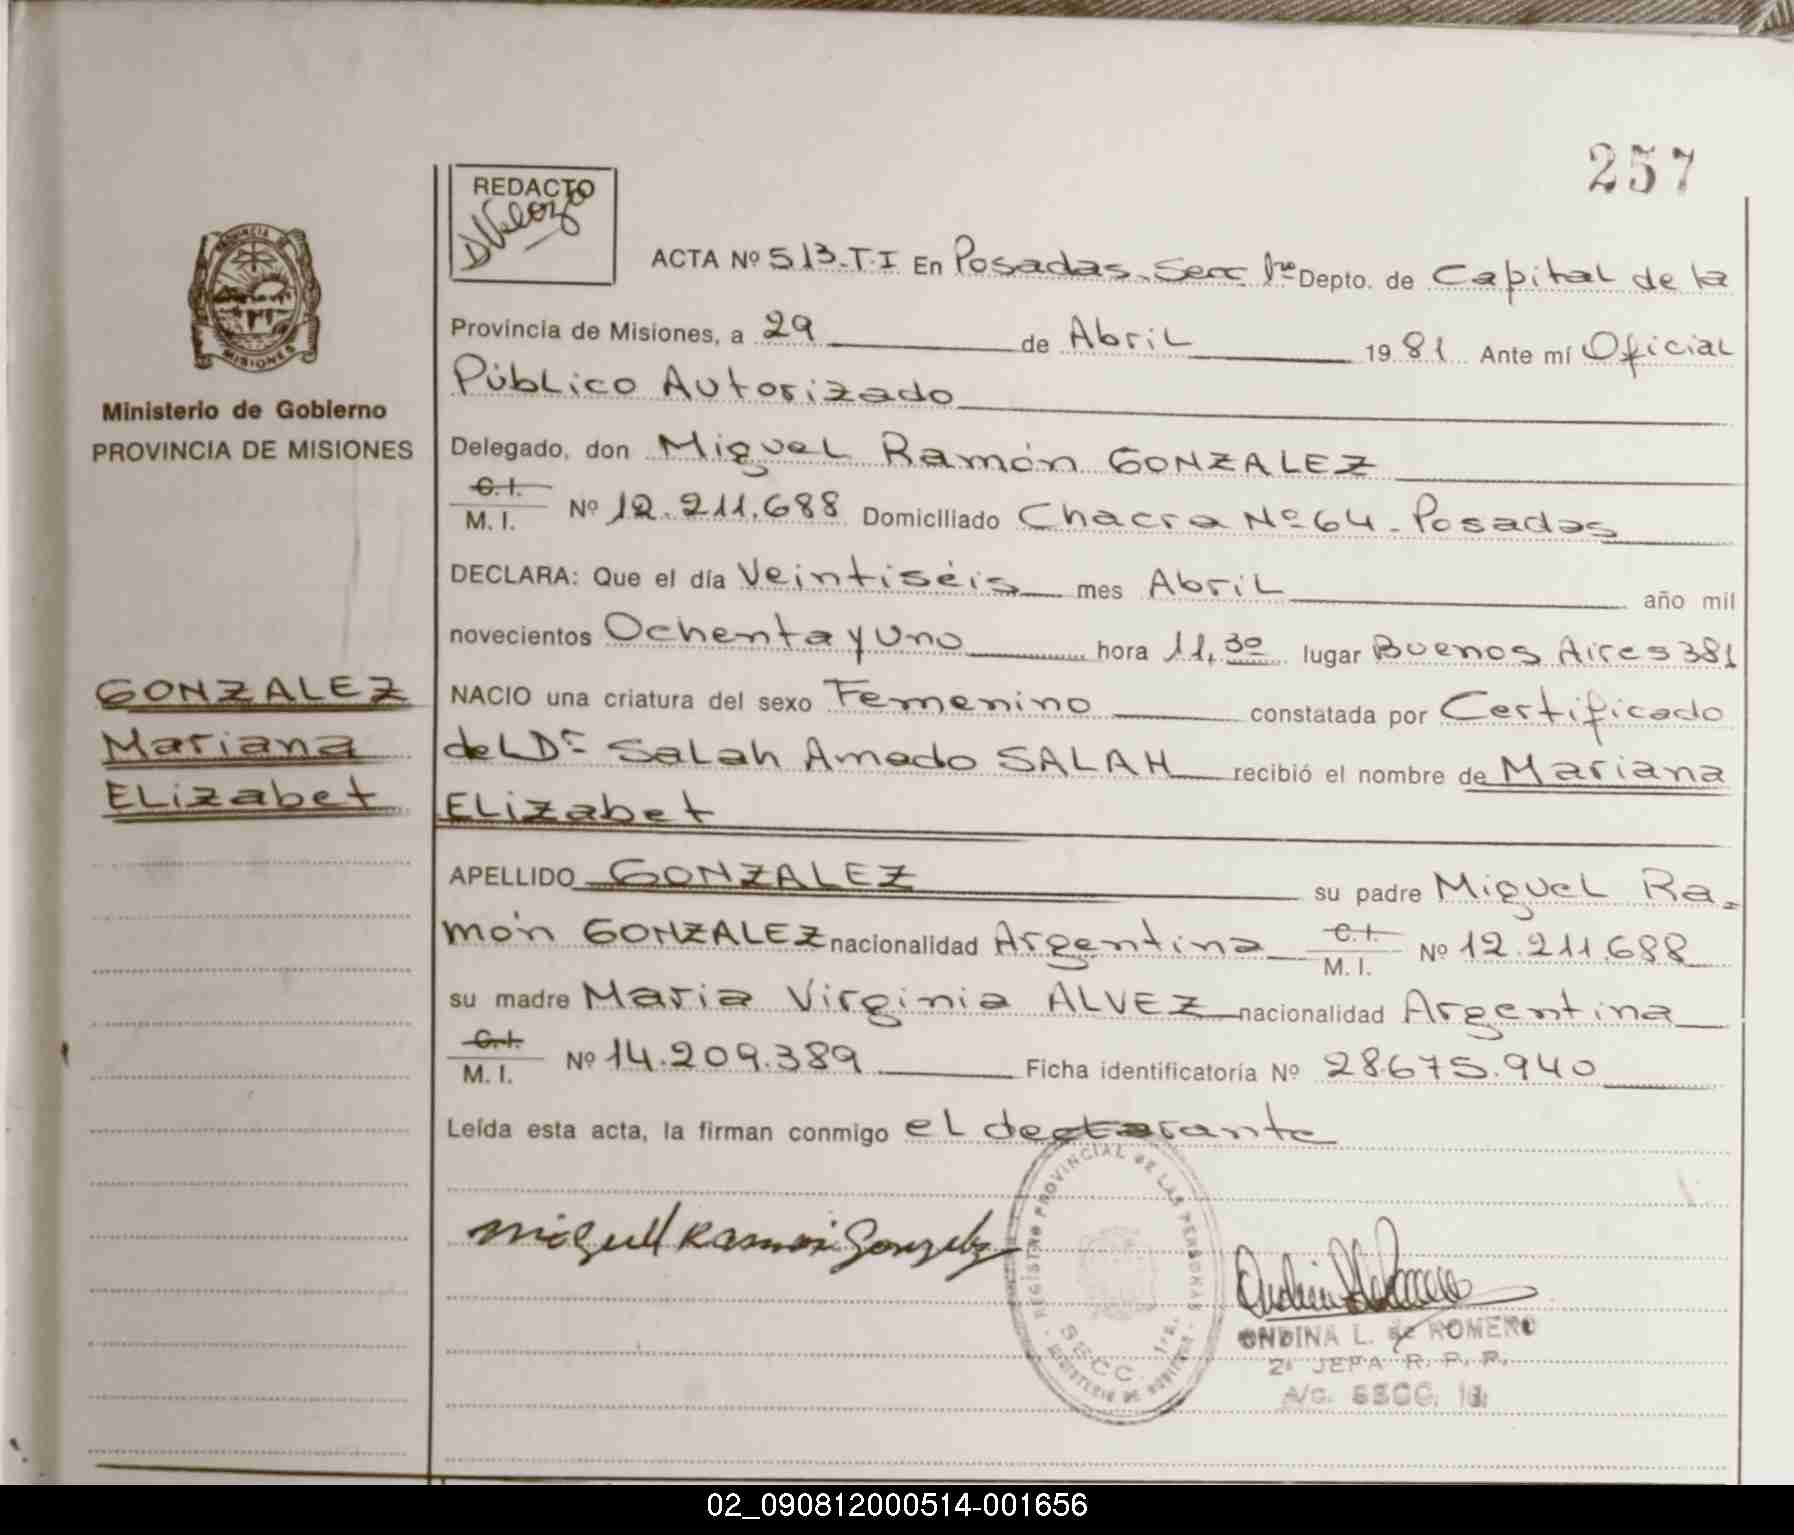 257
REDACTO
DVelozo
PROVINCIA DE
MISIONES
Ministerio de Gobierno
PROVINCIA DE MISIONES
ACTA Nº 513-T.I En Posadas. Secc 1ra Depto. de Capital de la
Provincia de Misiones, a 29 de Abril 1981 Ante mí Oficial
Público Autorizado
Delegado, don Miguel Ramón GONZALEZ
C.I.
M. I. Nº 12.211.688 Domiciliado Chacra Nº 64 - Posadas
DECLARA: Que el día Veintiséis mes Abril año mil
novecientos Ochenta y Uno hora 11,30 lugar Buenos Aires 381
NACIO una criatura del sexo Femenino constatada por Certificado
del Dr Salah Amado SALAH recibió el nombre de Mariana
Elizabet
GONZALEZ
Mariana
Elizabet
APELLIDO GONZALEZ su padre Miguel Ra-
món GONZALEZ nacionalidad Argentina C.I.
M. I. Nº 12.211.688
su madre Maria Virginia ALVEZ nacionalidad Argentina
C.I.
M. I. Nº 14.209.389 Ficha identificatoria Nº 28.675.940
Leída esta acta, la firman conmigo el declarante
Miguel Ramon Gonzalez
REGISTRO PROVINCIAL DE LAS PERSONAS
SECC. 1ra.
ONDINA L. de ROMERO
2ª JEFA R. P. P.
A/C. SECC. 1ª
02_090812000514-001656